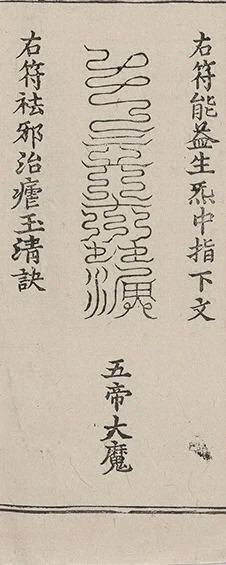 右符能益生炁中指下文
五帝大魔
右符祛邪治瘧玉清訣